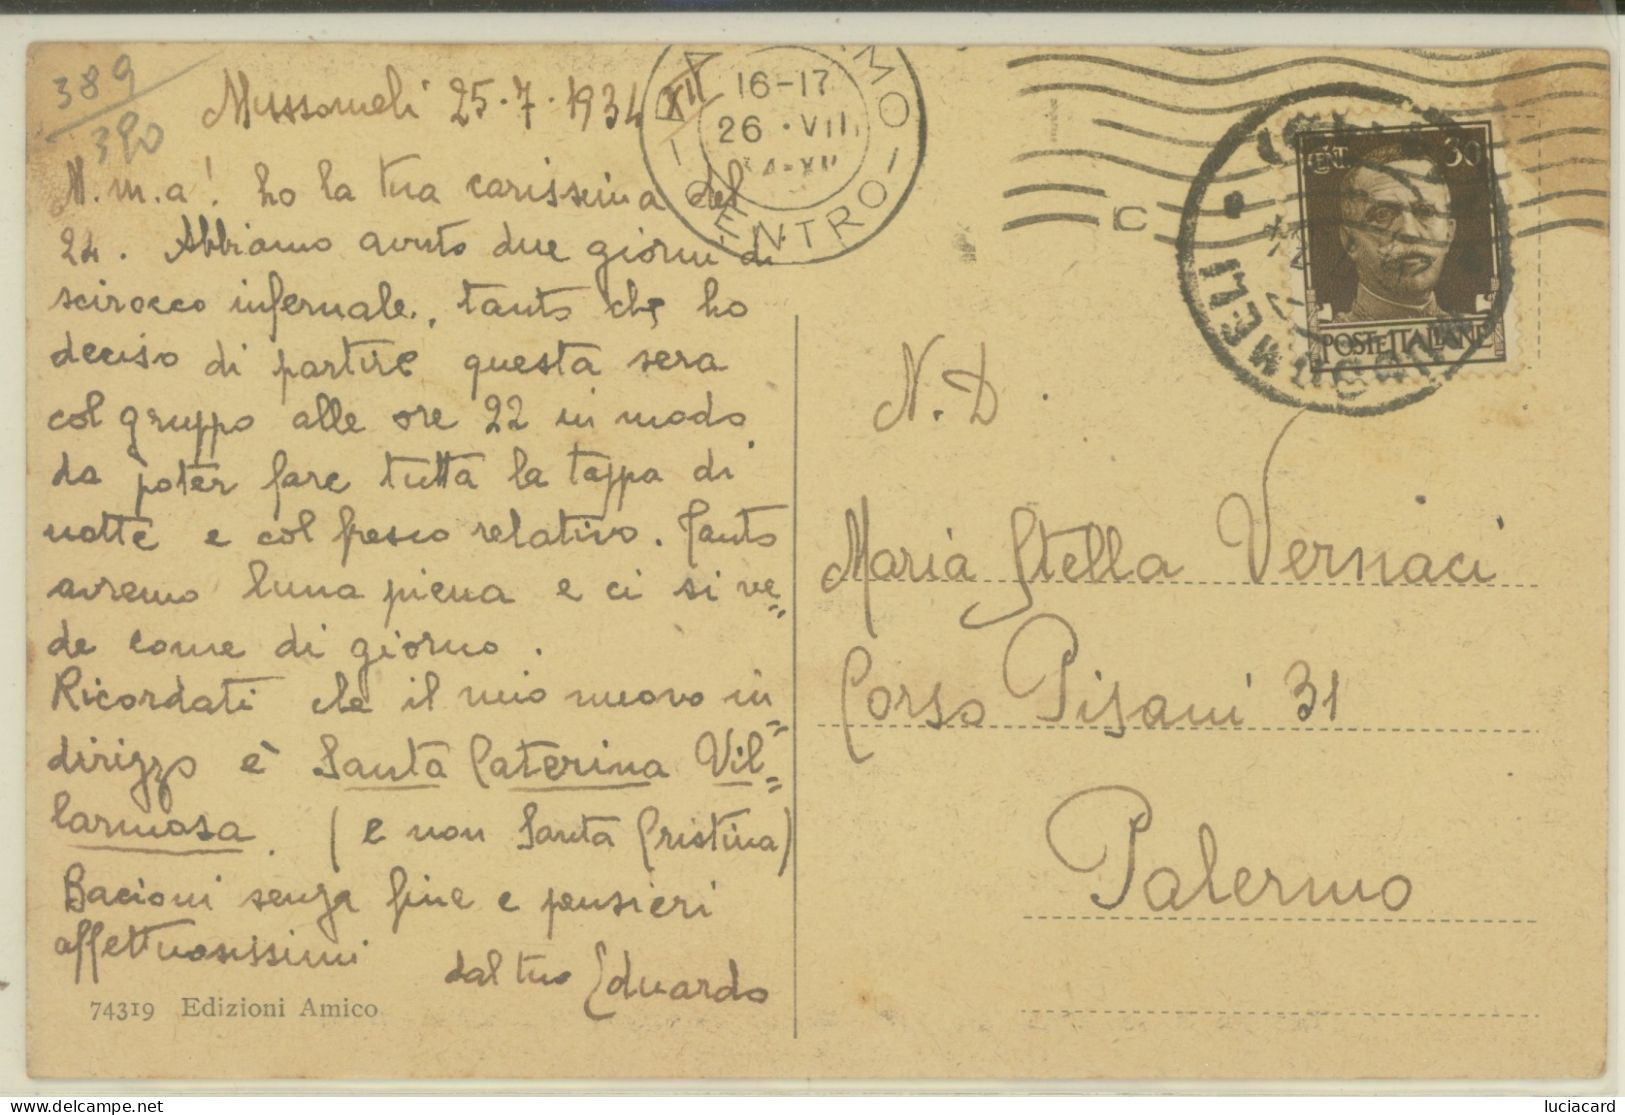 389
390
Mussomeli 25.7.1934 XII
N.m.a! ho la tua carissima del
24. Abbiamo avuto due giorni di
scirocco infernale, tanto che ho
deciso di partire questa sera
col gruppo alle ore 22 in modo
da poter fare tutta la tappa di
notte e col fresco relativo. Tanto
avremo luna piena e ci si ve=
de come di giorno.
Ricordati che il mio nuovo in=
dirizzo è Santa Caterina Vil=
larmosa. (e non Santa Cristina)
Bacioni senza fine e pensieri
affettuosissimi dal tuo Eduardo
74319 Edizioni Amico
16-17
26 · VII
CENTRO
C
CENT. 30
POSTE ITALIANE
N.D.
Maria Stella Vernaci
Corso Pisani 31
Palermo
luciacard